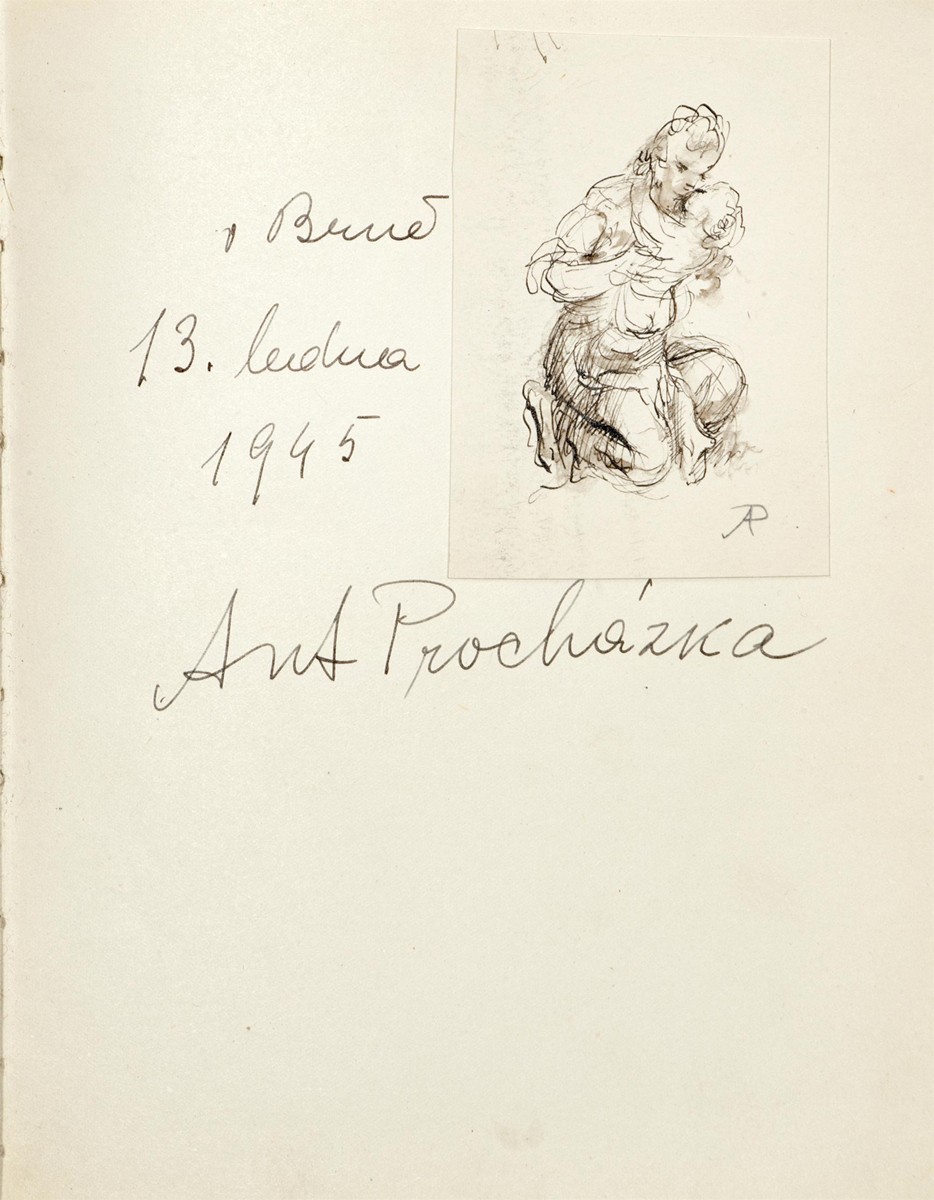 v Brně
13. ledna
1945
AP
Ant Procházka